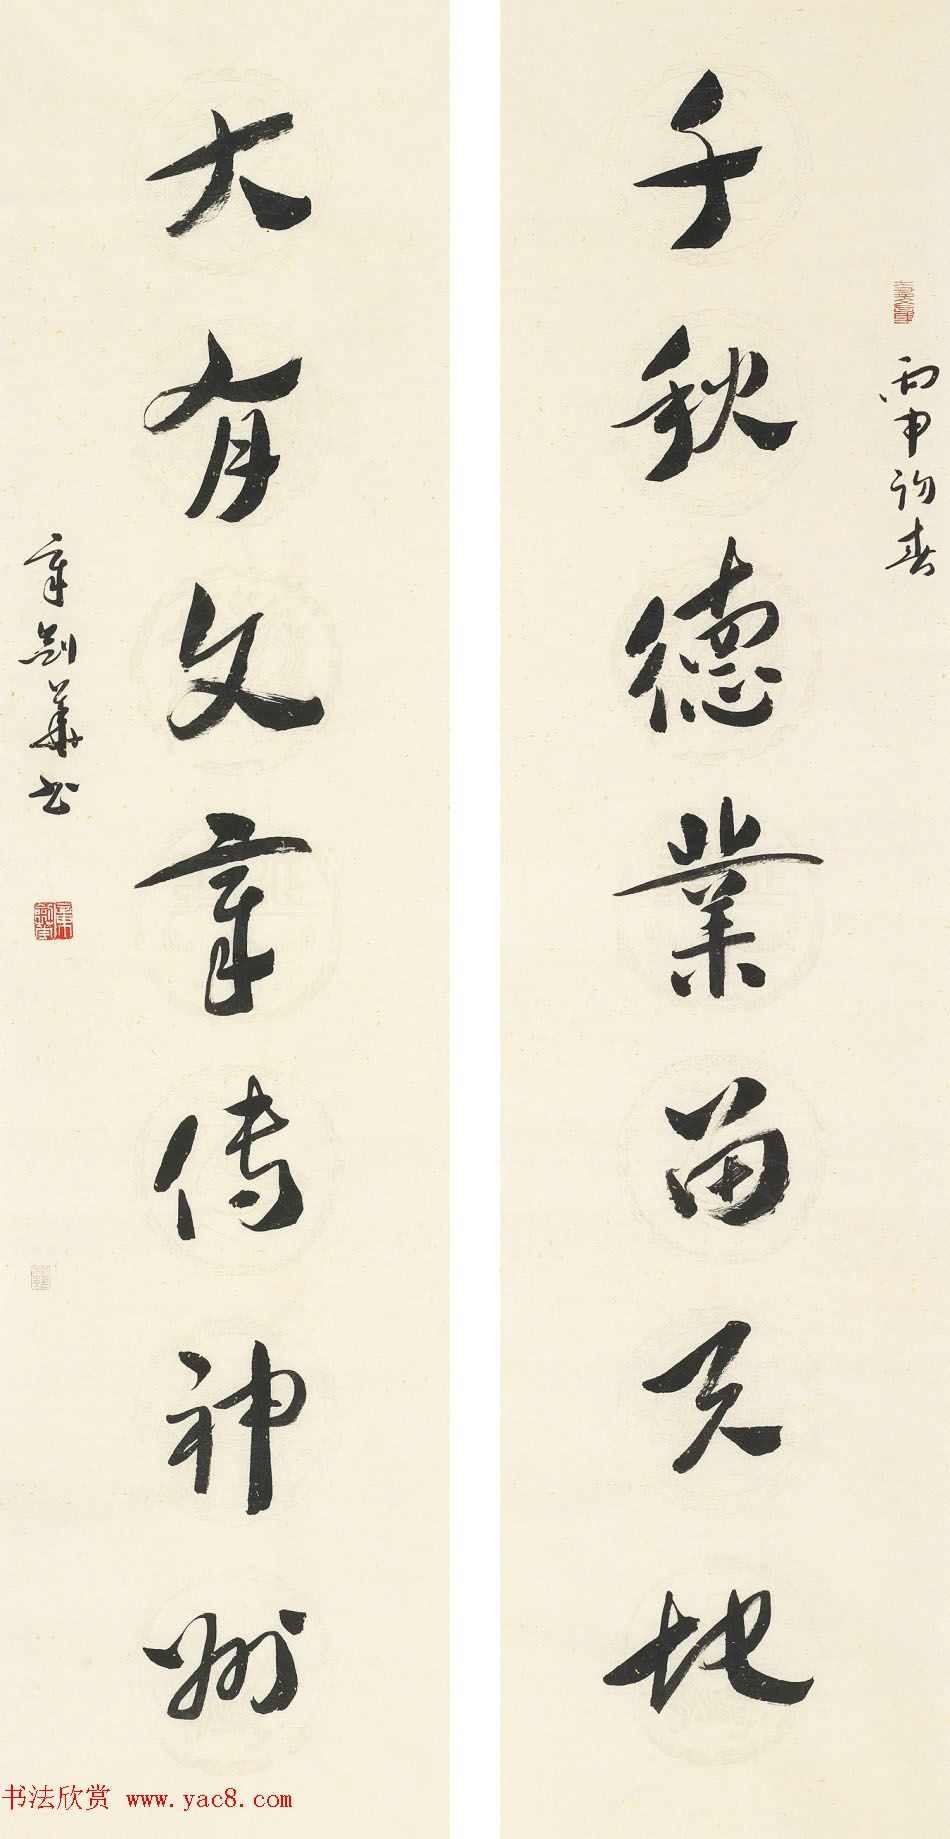 千秋德業留天地
丙申初春
大有文章傳神州
章劍華書
书法欣赏 www.yac8.com